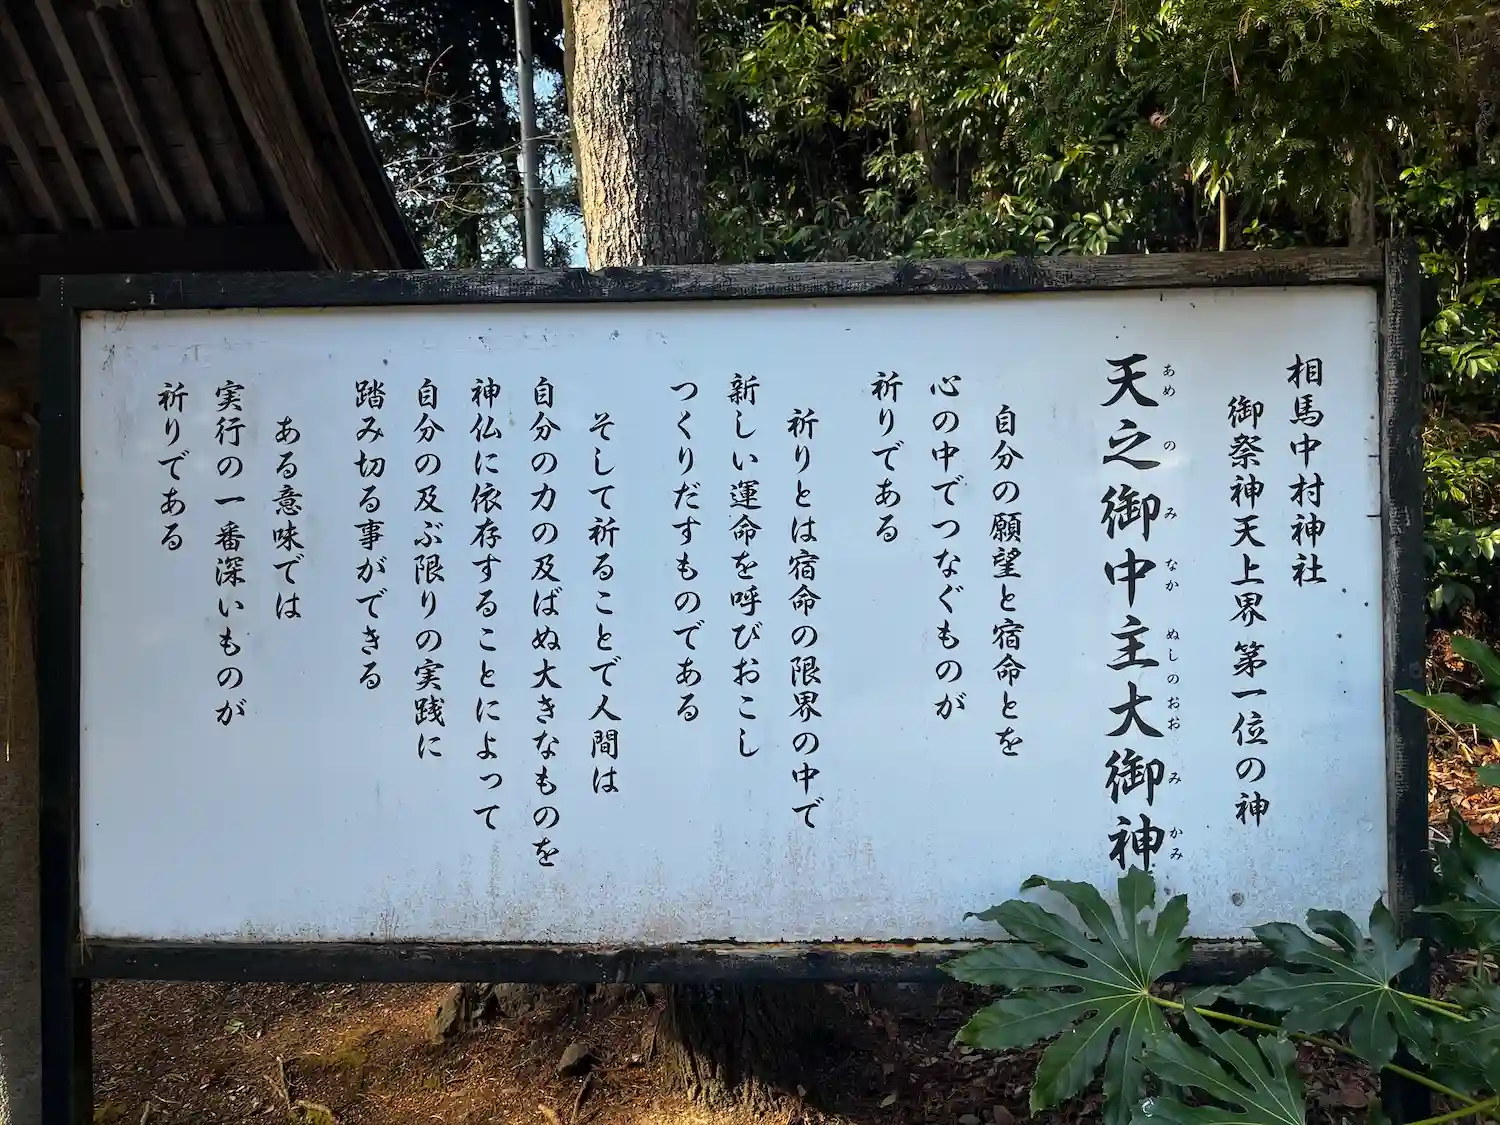 相馬中村神社
御祭神天上界 第一位の神
天之御中主大御神
あめ の み なか ぬしのおお み かみ
自分の願望と宿命とを
心の中でつなぐものが
祈りである
祈りとは宿命の限界の中で
新しい運命を呼びおこし
つくりだすものである
そして祈ることで人間は
自分の力の及ばぬ大きなものを
神仏に依存することによって
自分の及ぶ限りの実践に
踏み切る事ができる
ある意味では
実行の一番深いものが
祈りである